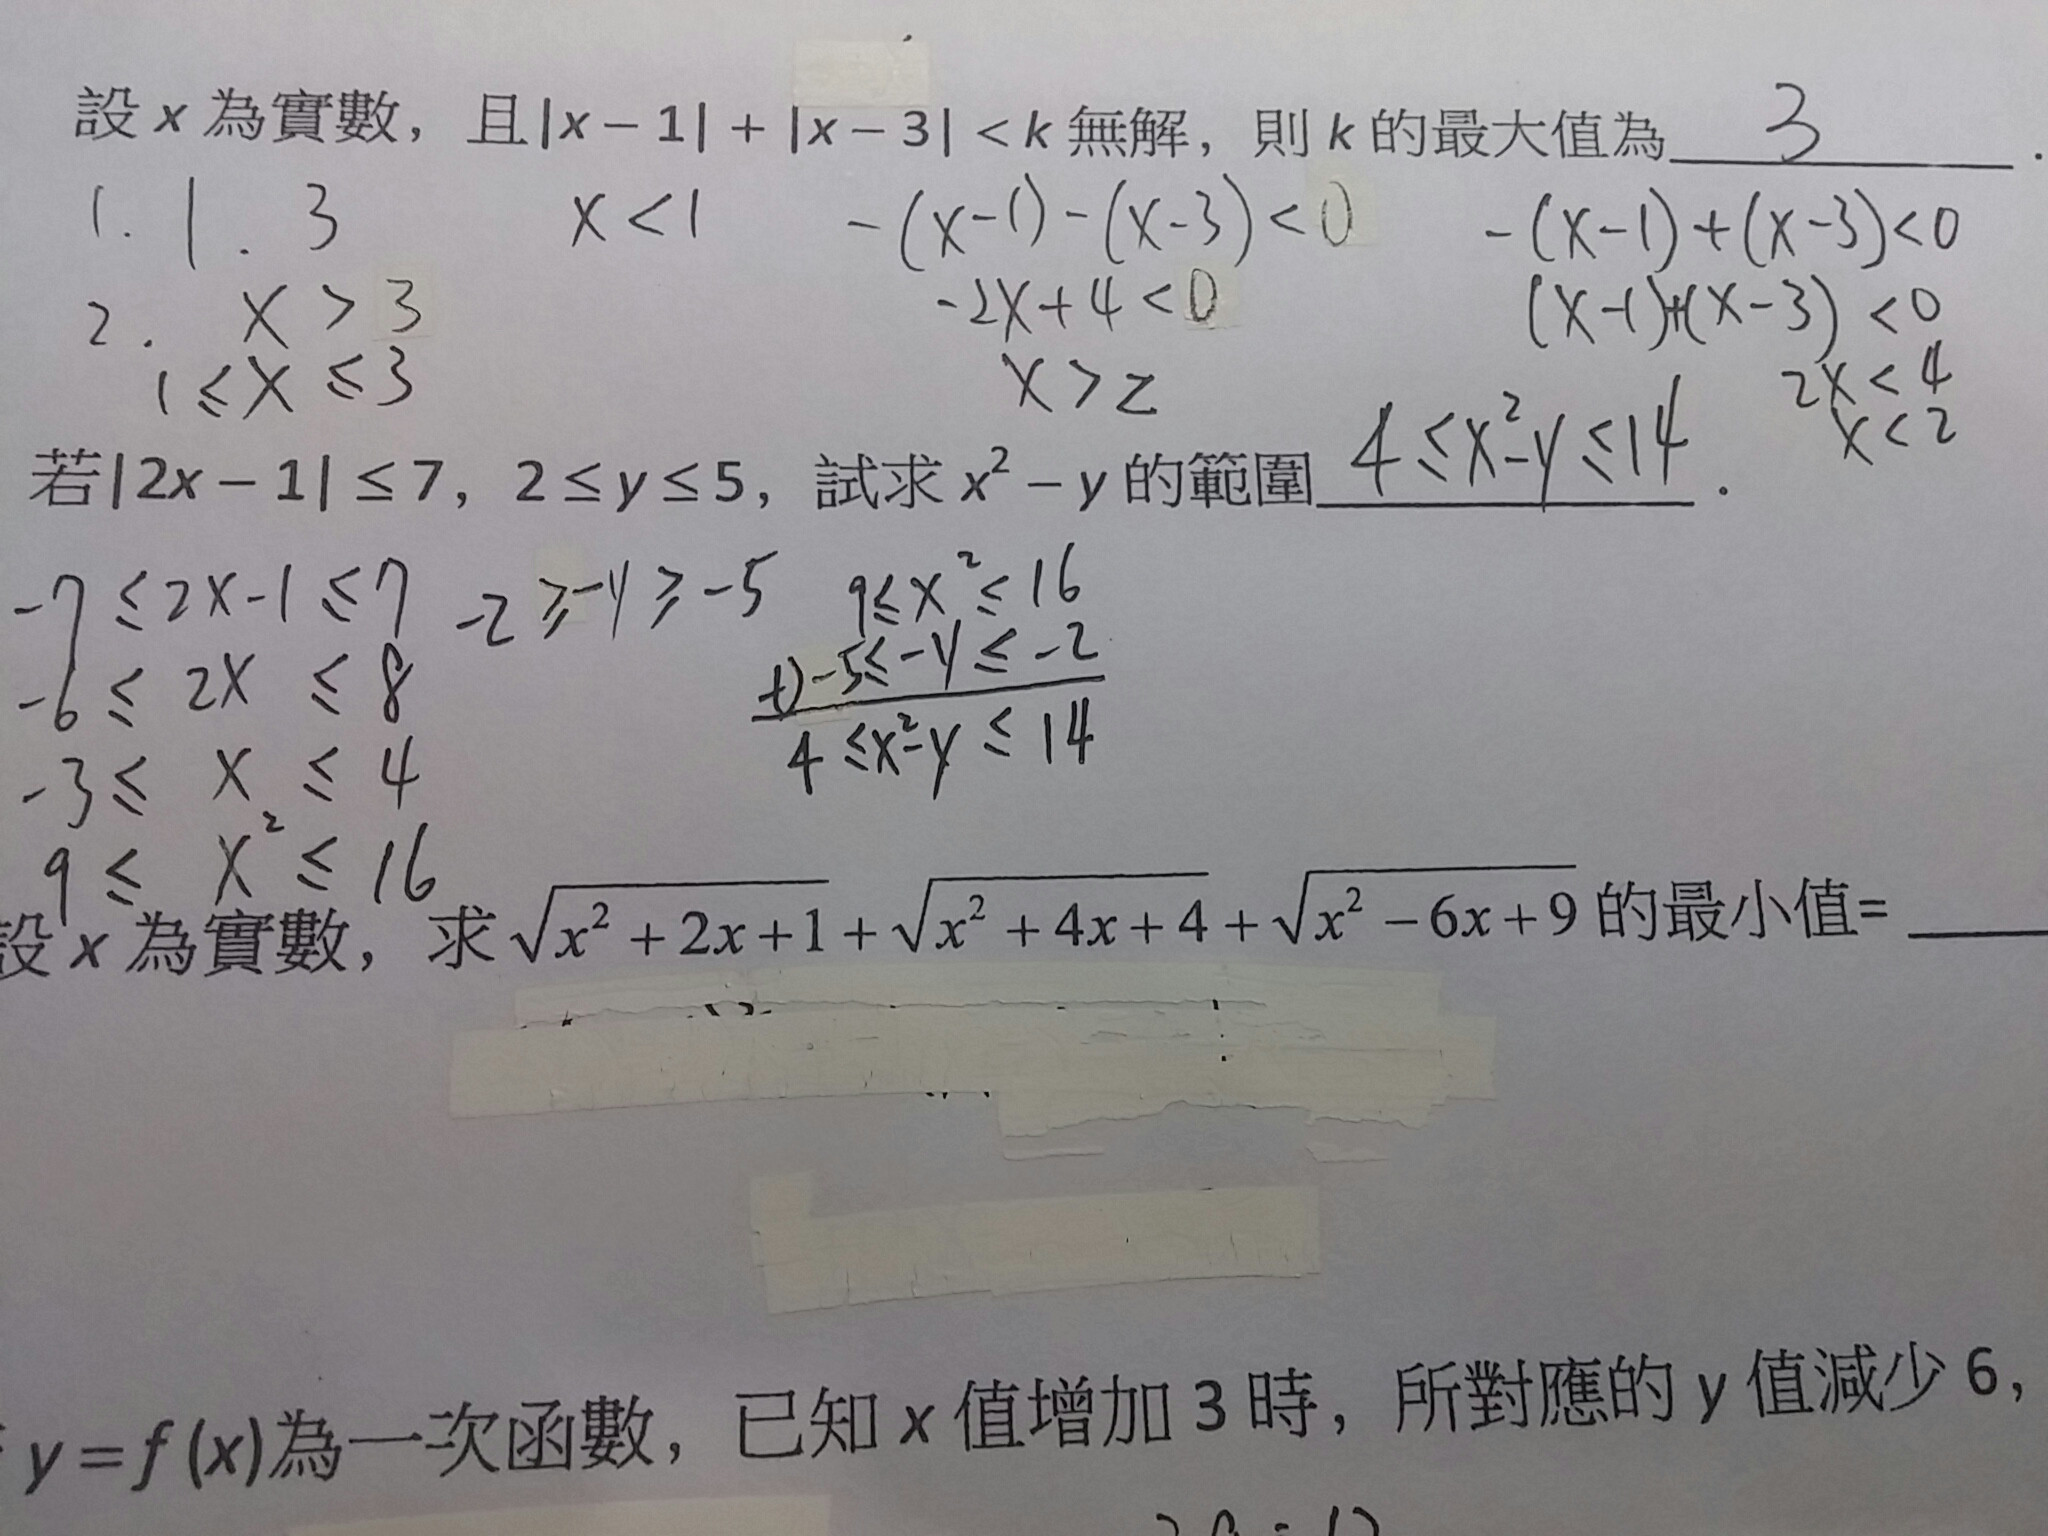 設 x 為實數，且|x－1|＋|x－3|＜k 無解，則 k 的最大值為 3 .
1. 1 . 3 x<1 -(x-1)-(x-3)<0 -(x-1)+(x-3)<0
2. x>3 -2x+4<0 (x-1)+(x-3)<0
1≤x≤3 x>2 2x<4
x<2
若|2x－1|≤7，2≤y≤5，試求 x²－y 的範圍 4≤x²-y≤14 .
-7≤2x-1≤7 -2≥-y≥-5 9≤x²≤16
-6≤2x≤8 +)-5≤-y≤-2
-3≤x≤4 4≤x²-y≤14
9≤x²≤16
設 x 為實數，求 √(x²+2x+1)+√(x²+4x+4)+√(x²-6x+9) 的最小值=
y=f(x)為一次函數，已知 x 值增加 3 時，所對應的 y 值減少 6，